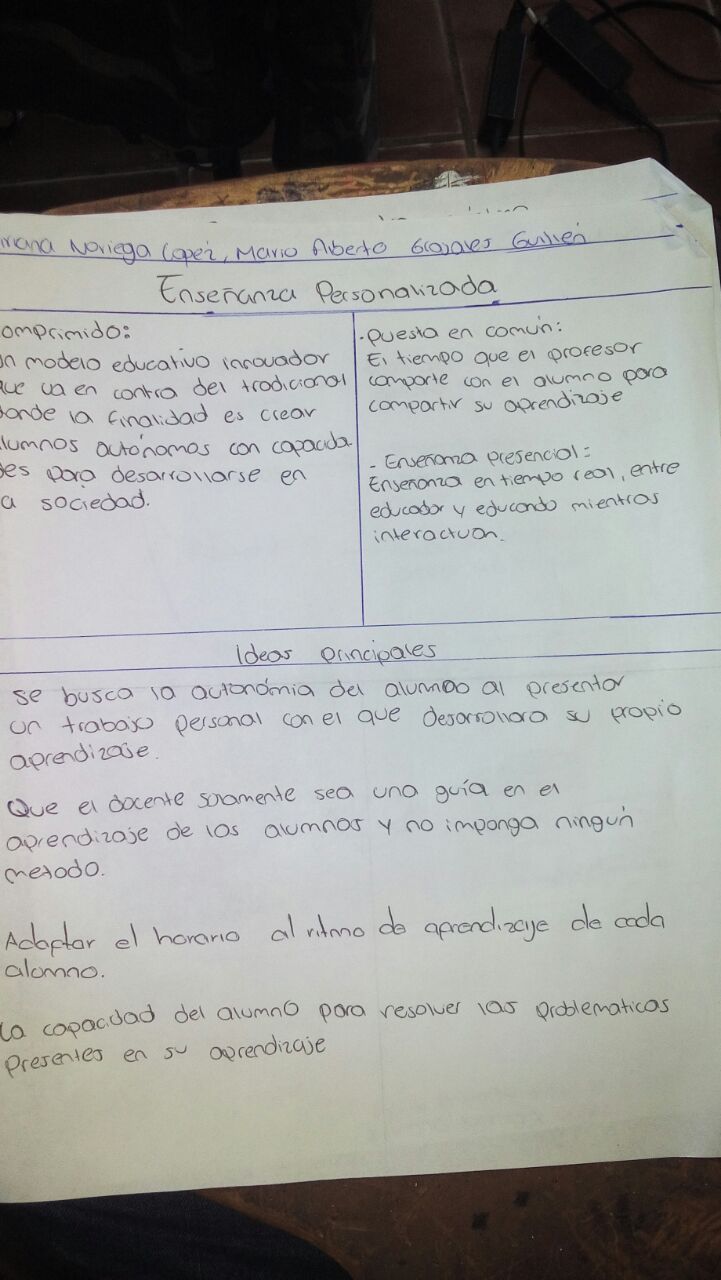 Noriega Lopez, Mario Alberto Grajales Guillén
Enseñanza Personalizada
omprimido:
n modelo educativo innovador
ue va en contra del tradicional
donde la finalidad es crear
lumnos autónomos con capacida
des para desarrollarse en
a sociedad.
- Puesta en común:
El tiempo que el profesor
comparte con el alumno para
compartir su aprendizaje
- Enseñanza presencial:
Enseñanza en tiempo real, entre
educador y educando mientras
interactuan.
Ideas principales
se busca la autonómia del alumno al presentar
un trabajo personal con el que desarrollara su propio
aprendizaje.
Que el docente solamente sea una guía en el
aprendizaje de los alumnos y no imponga ningún
metodo.
Adaptar el horario al ritmo de aprendizaje de cada
alumno.
La capacidad del alumno para resolver las problematicas
presentes en su aprendizaje